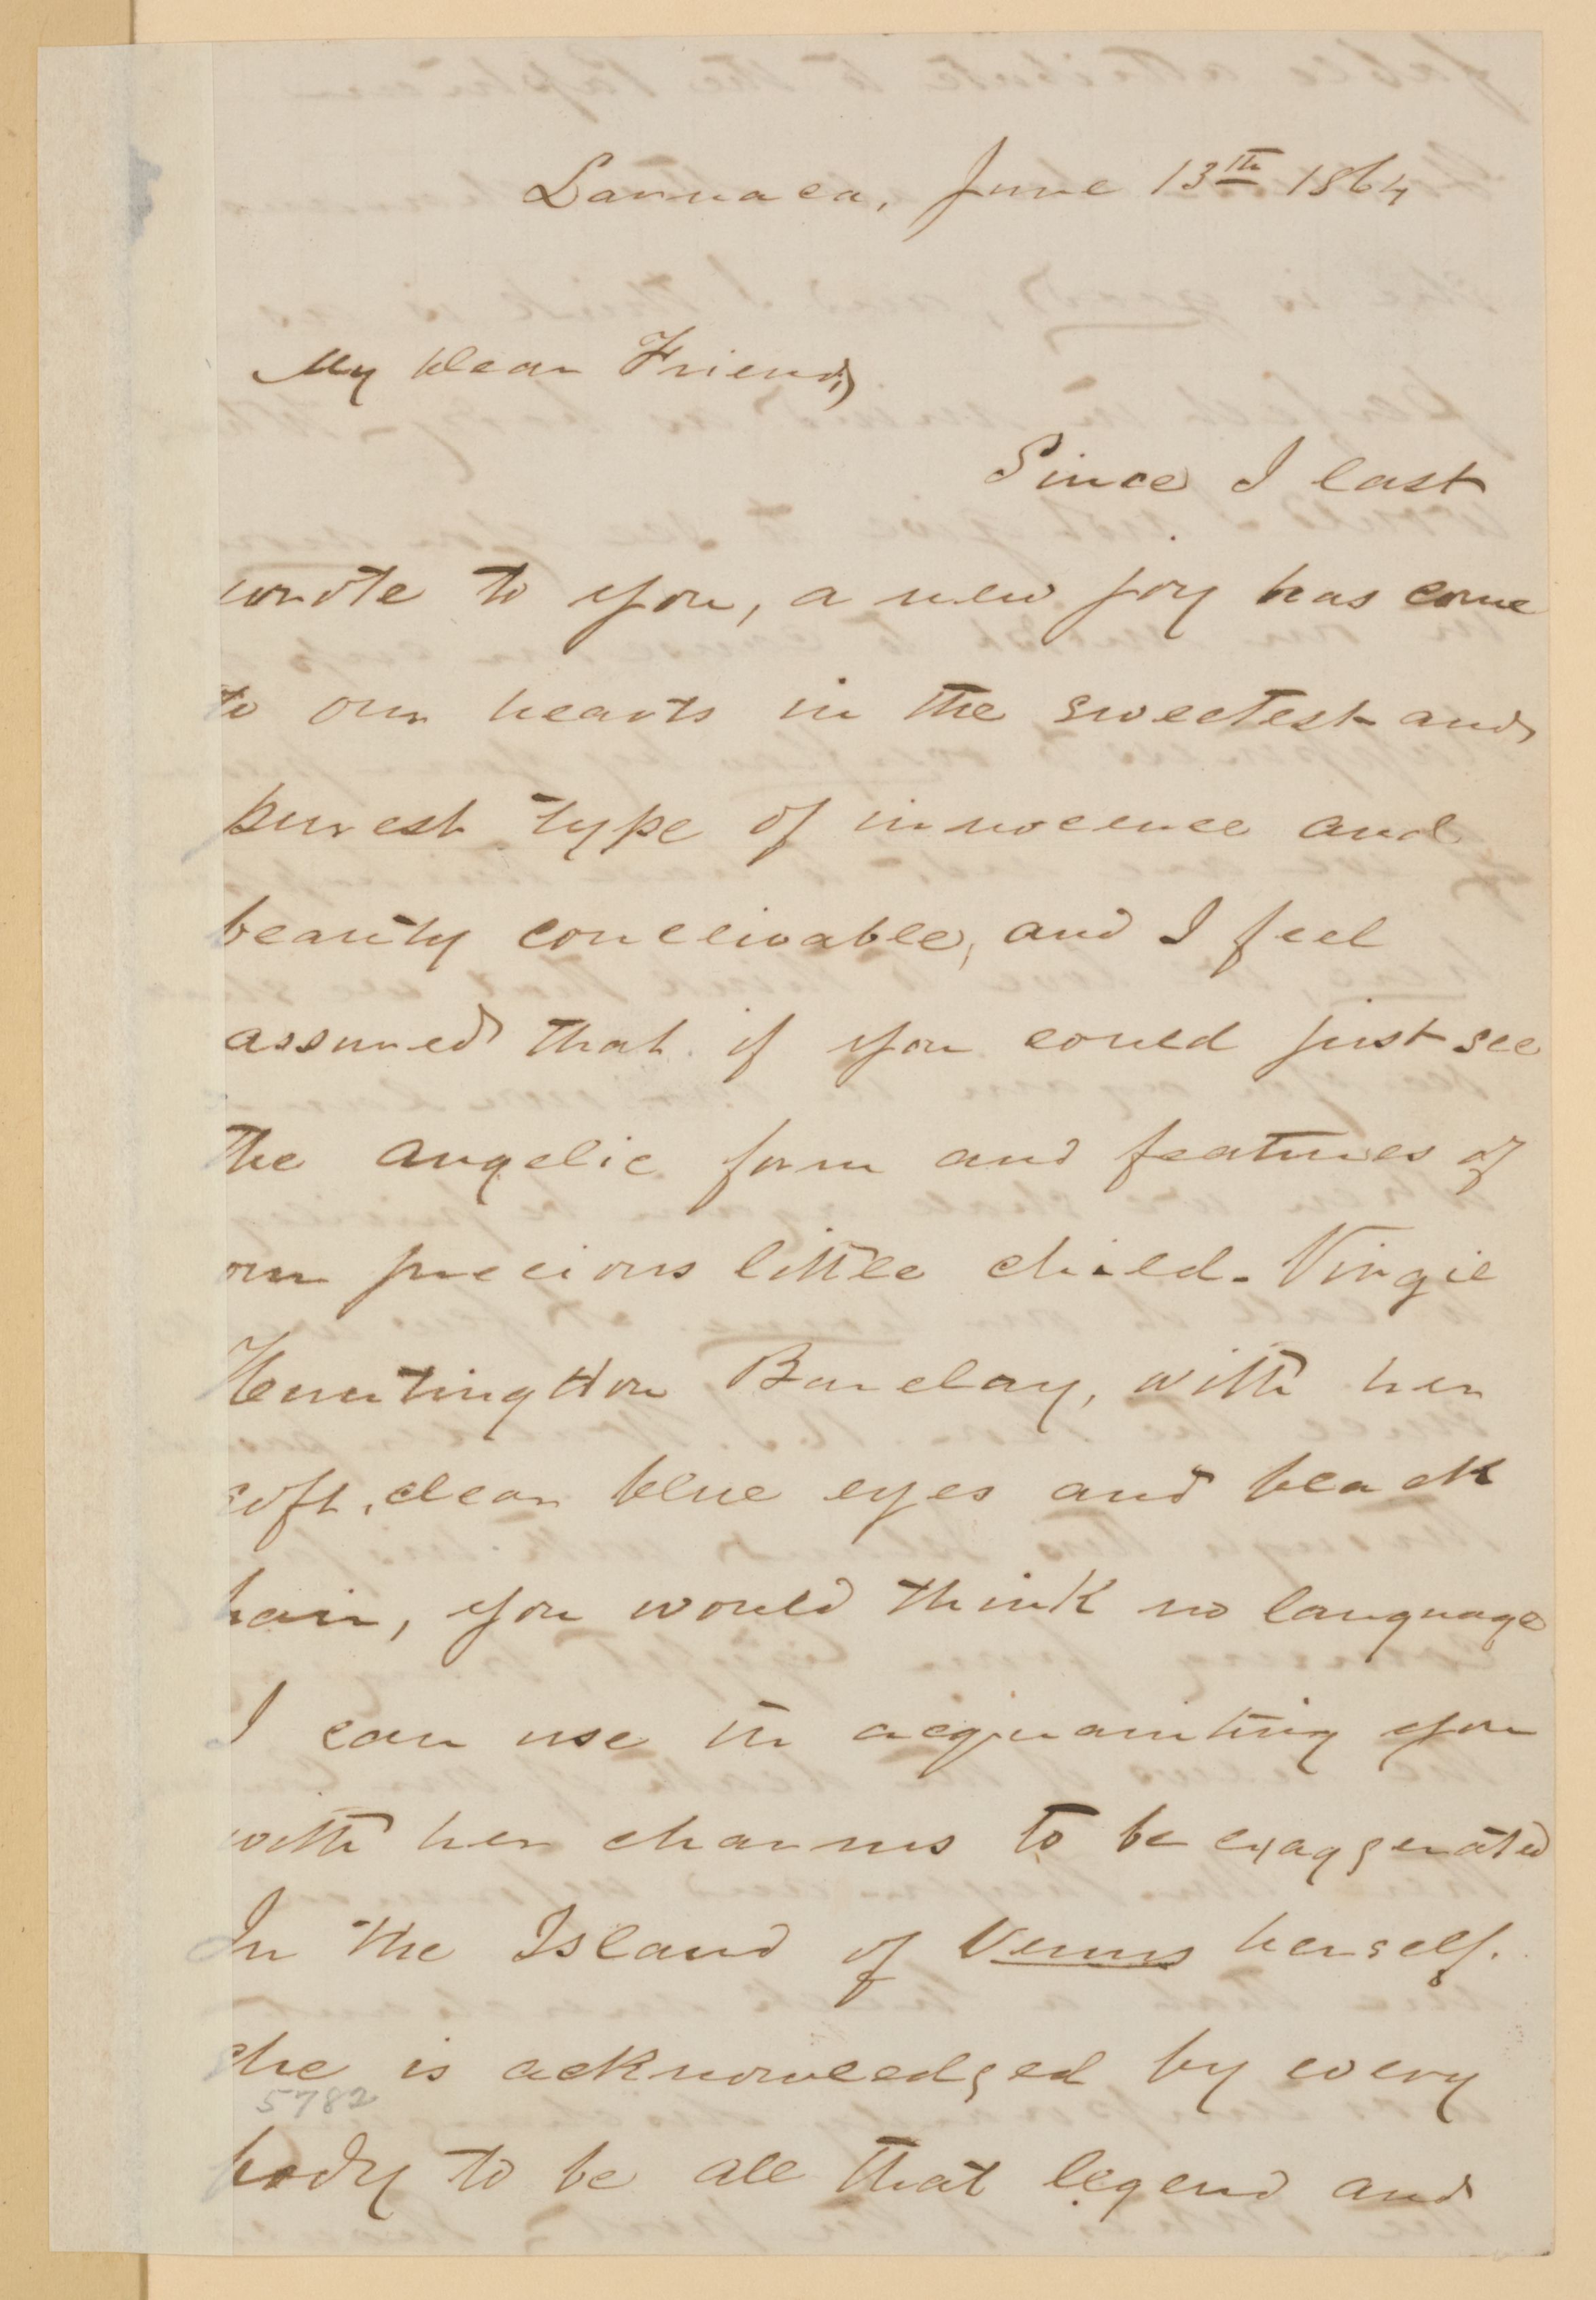 Larnaca, June 13th 1864
My dear Friend,
Since I last
wrote to you, a new joy has come
to our hearts in the sweetest and
purest type of innocence and
beauty conceivable, and I feel
assured that if you could just see
the angelic form and features of
our precious little child - Virgie
Huntington Barclay, with her
soft, clear blue eyes and black
hair, you would think no language
I can use in acquainting you
with her charms to be exaggerated
In the Island of Venus herself.
she is acknowledged by every
5782
body to be all that legend and